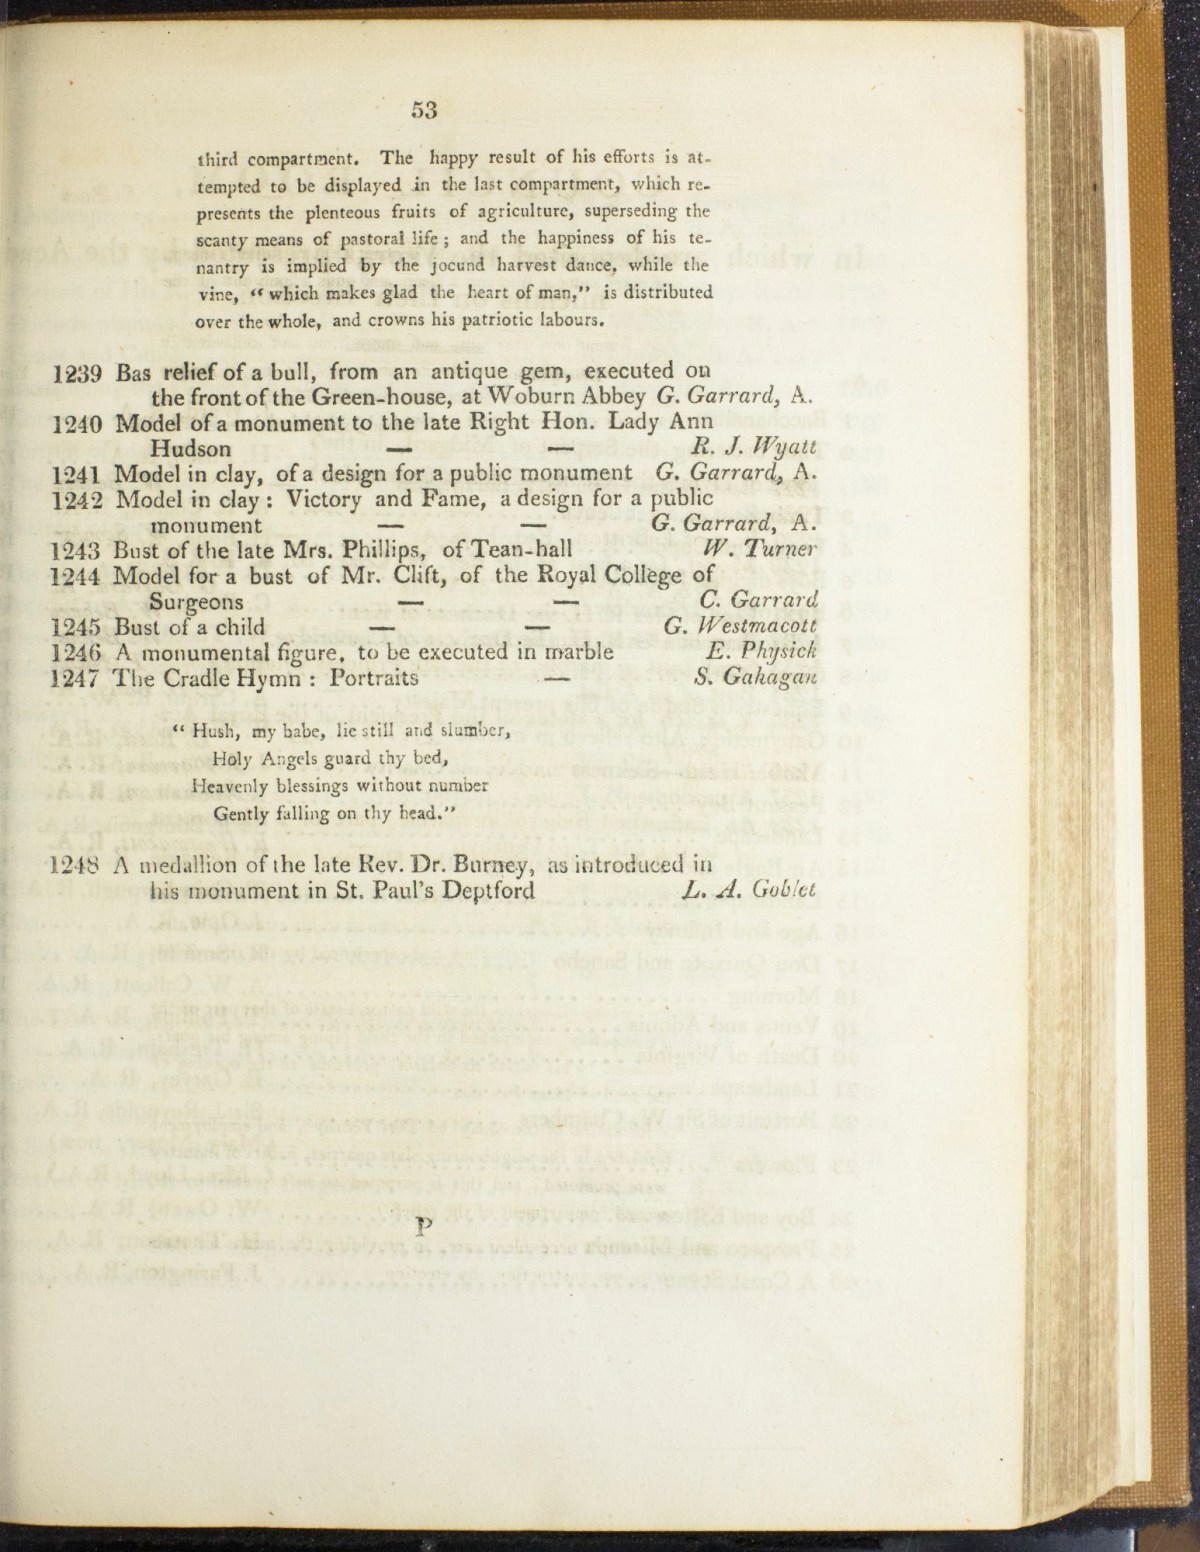 53
third compartment. The happy result of his efforts is at-
tempted to be displayed in the last compartment, which re-
presents the plenteous fruits of agriculture, superseding the
scanty means of pastoral life ; and the happiness of his te-
nantry is implied by the jocund harvest dance, while the
vine, “ which makes glad the heart of man,” is distributed
over the whole, and crowns his patriotic labours.
1239 Bas relief of a bull, from an antique gem, executed on
the front of the Green-house, at Woburn Abbey G. Garrard, A.
1240 Model of a monument to the late Right Hon. Lady Ann
Hudson — — R. J. Wyatt
1241 Model in clay, of a design for a public monument G. Garrard, A.
1242 Model in clay : Victory and Fame, a design for a public
monument — — G. Garrard, A.
1243 Bust of the late Mrs. Phillips, of Tean-hall W. Turner
1244 Model for a bust of Mr. Clift, of the Royal College of
Surgeons — — C. Garrard
1245 Bust of a child — — G. Westmacott
1246 A monumental figure, to be executed in marble E. Physick
1247 The Cradle Hymn : Portraits — S. Gahagan
“ Hush, my babe, lie still and slumber,
Holy Angels guard thy bed,
Heavenly blessings without number
Gently falling on thy head.”
1248 A medallion of the late Rev. Dr. Burney, as introduced in
his monument in St. Paul's Deptford L. A. Goblet
P